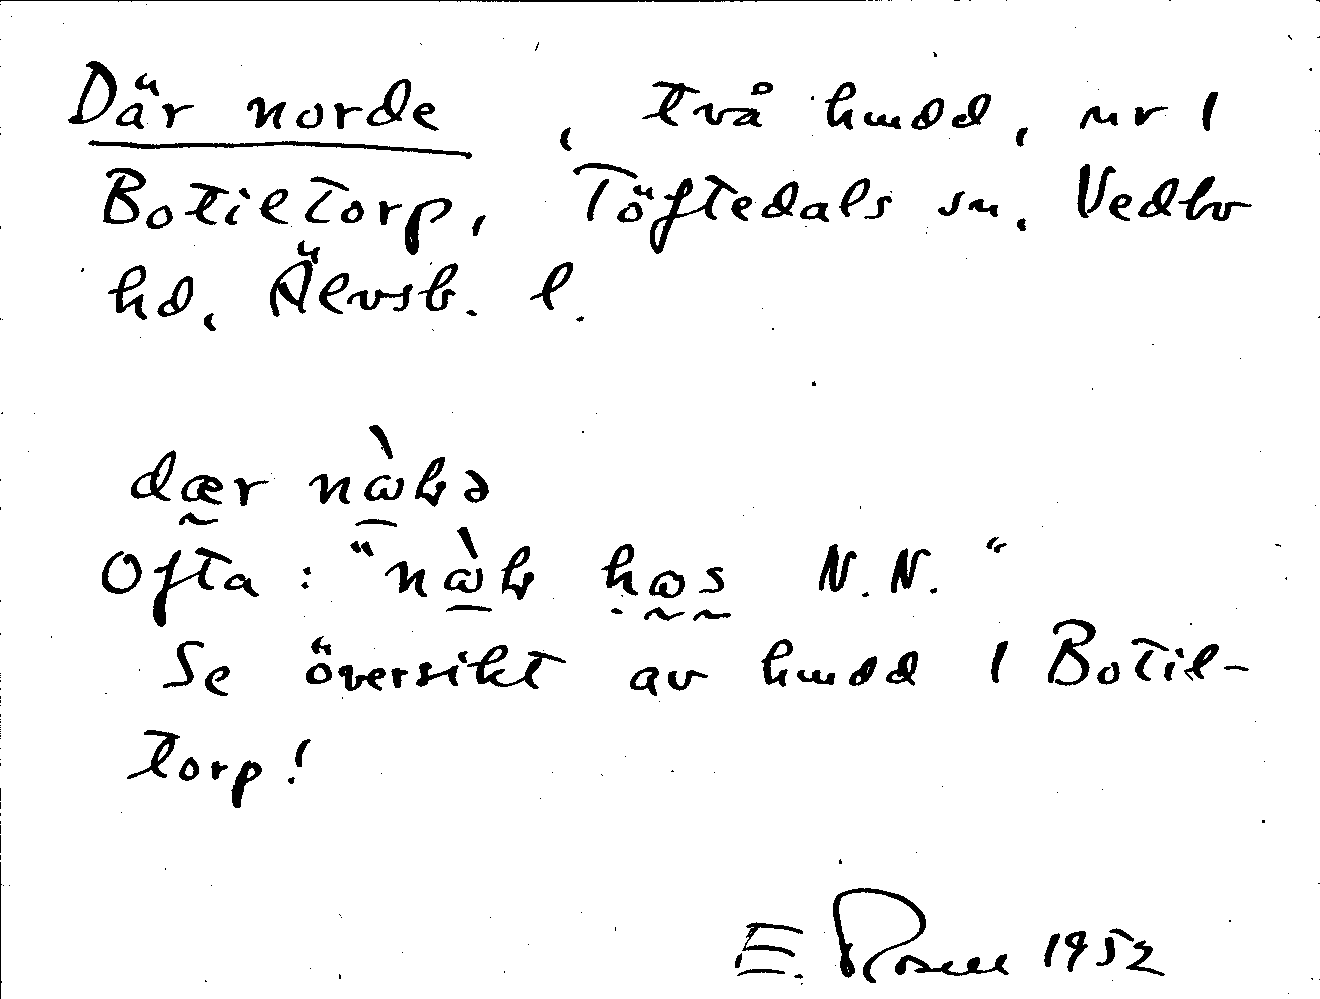 Där norde, två hmdd, nr 1
Botiltorp, Töftedals sn. Vedbo
hd, Älvsb. l.
dær
Ofta: " N.N."
Se översikt av hmdd 1 Botil-
torp!
E. Rosell 1952